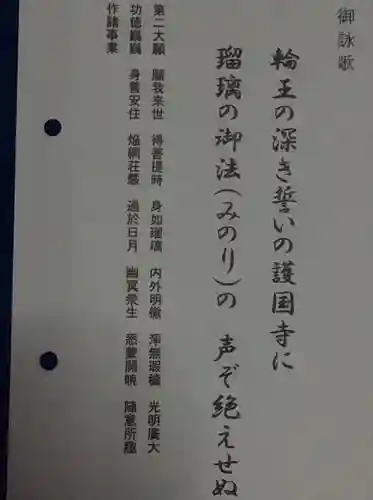 御詠歌
輪王の深き誓いの護国寺に
瑠璃の御法(みのり)の 声ぞ絶えせぬ
第二大願 願我来世 得菩提時 身如瑠璃 内外明徹 浄無瑕穢 光明廣大
功徳巍巍 身善安住 焔網荘厳 過於日月 幽冥衆生 悉蒙開暁 随意所趣
作諸事業